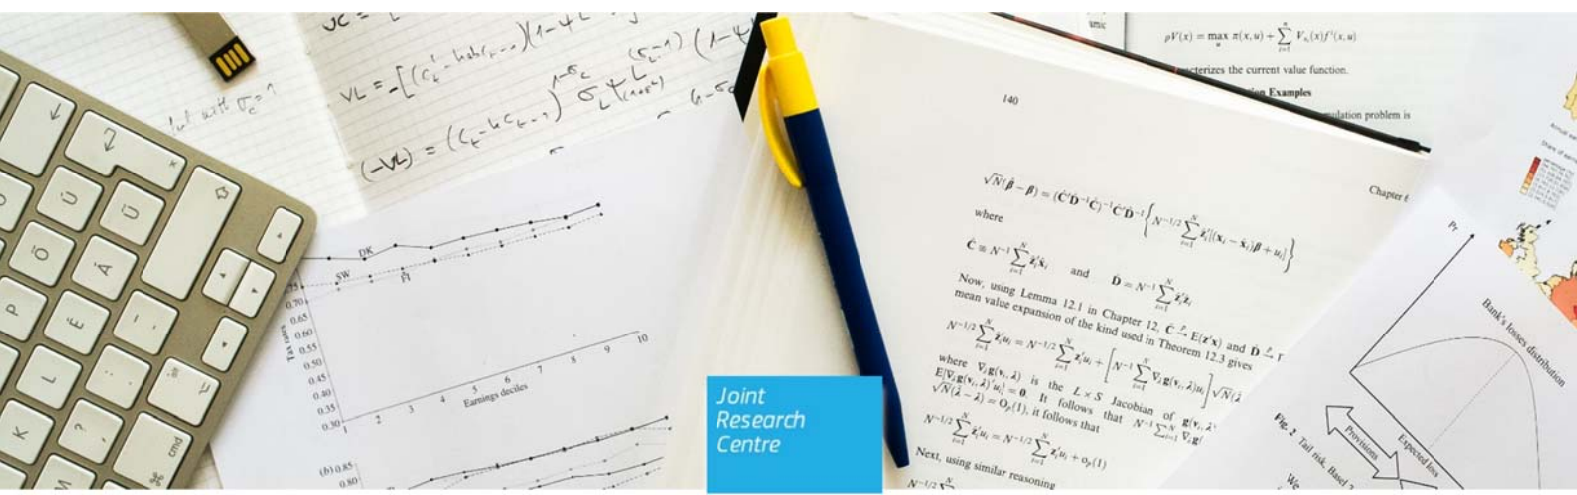 VC =
VL = -[(C_t - hab C_{t-1})(1-Ψ L
but with σ_c = 1
(-VL) = (C_t - hC_{t-1})^{1-σ_c} σ_L Ψ L^{(1+σ^L)} (σ_c-1) (1-Ψ
DK
SW
FI
0.75
0.70
0.65
0.60
0.55
0.50
0.45
0.40
0.35
0.30
Tax rates
1 2 3 4 5 6 7 8 9 10
Earnings deciles
(b) 0.85
0.80
Ü Ú
Ő Á
P É -
L
K ? cmd
M
Joint
Research
Centre
amic
ρV(x) = max_u π(x, u) + Σ_{i=1}^n V_{x_i}(x)f^i(x, u)
cterizes the current value function.
Examples
ulation problem is
140
Chapter 6
√N(β̂ − β) = (Ĉ′D̂⁻¹Ĉ)⁻¹Ĉ′D̂⁻¹{N^{-1/2} Σ_{i=1}^N ẑ′_i[(x_i − x̂_i)β + u_i]}
where
Ĉ ≡ N⁻¹ Σ_{i=1}^N ẑ′_i x̂_i and D̂ = N⁻¹ Σ_{i=1}^N ẑ′_i ẑ_i
Now, using Lemma 12.1 in Chapter 12, Ĉ →p E(z′x) and D̂ →p
mean value expansion of the kind used in Theorem 12.3 gives
N^{-1/2} Σ_{i=1}^N ẑ′_i u_i = N^{-1/2} Σ_{i=1}^N z′_i u_i + [N⁻¹ Σ_{i=1}^N ∇_λ g(v_i, λ)u_i] √N(λ̂
where ∇_λ g(v_i, λ) is the L × S Jacobian of g(v_i, λ
E[∇_λ g(v_i, λ)′u_i] = 0. It follows that N⁻¹ Σ_{i=1}^N ∇_λ g(
√N(λ̂ − λ) = O_p(1), it follows that
N^{-1/2} Σ_{i=1}^N ẑ′_i u_i = N^{-1/2} Σ_{i=1}^N z′_i u_i + o_p(1)
Next, using similar reasoning
N^{-1/2} Σ
Pr
Bank's losses distribution
Expected loss
Provisions
Fig. 2 Tail risk, Basel 2
We